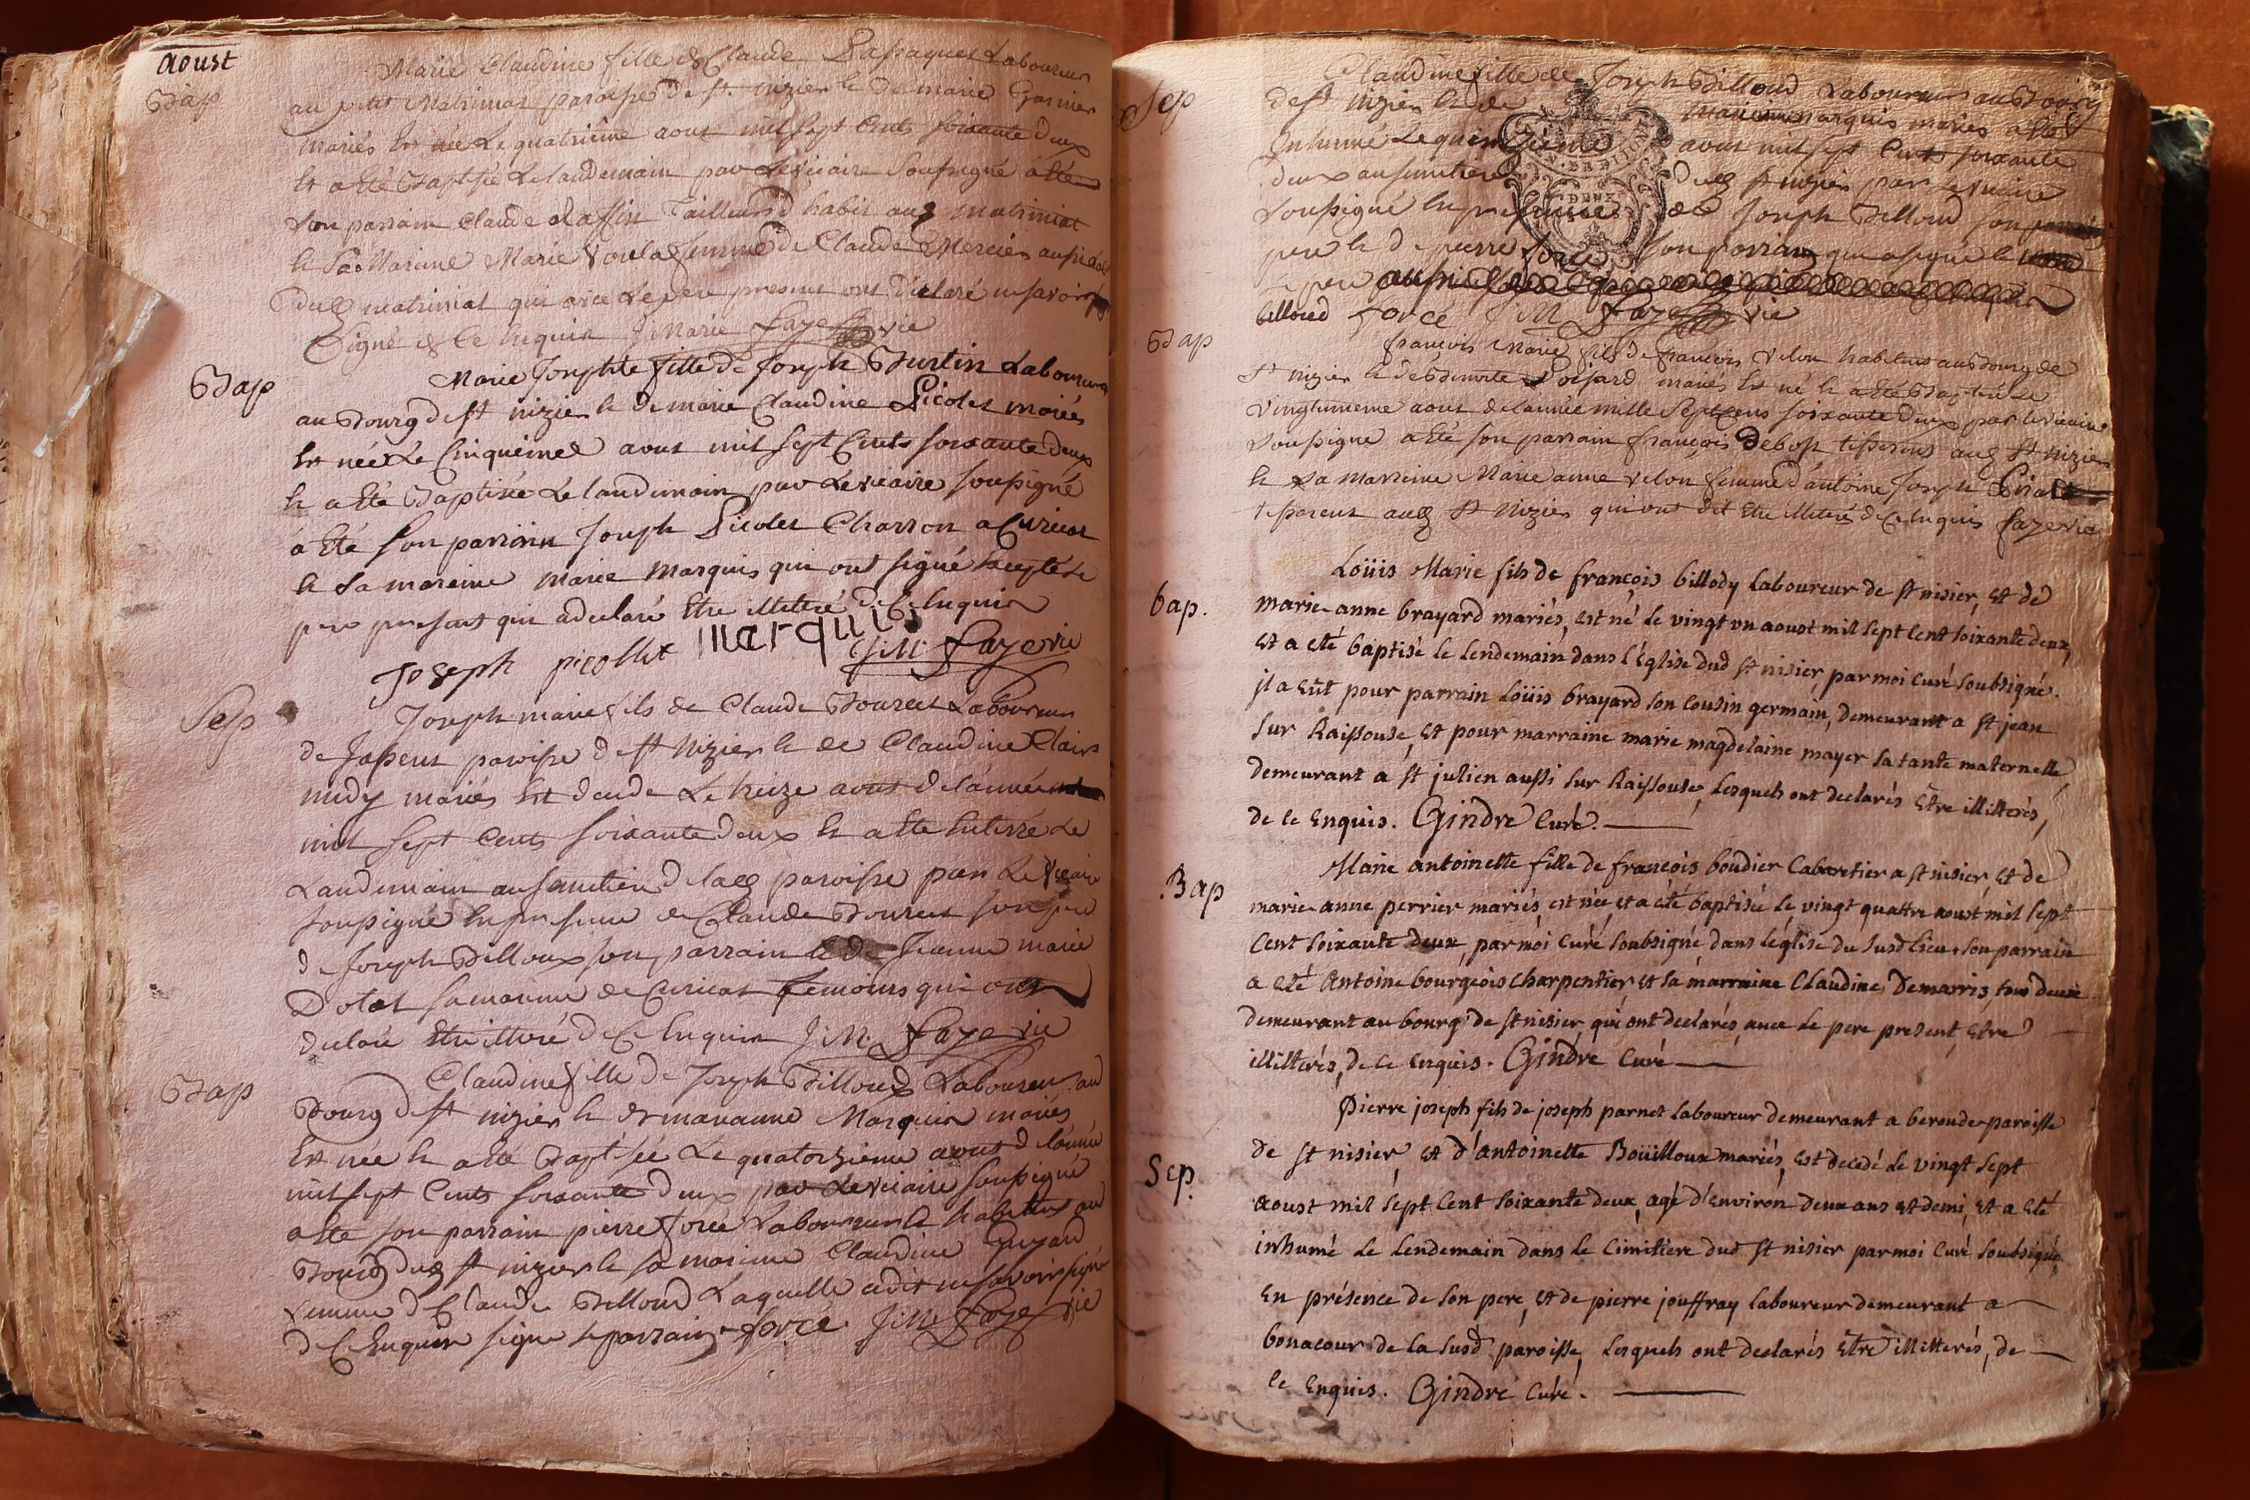 aoust
Bap
Marie Claudine fille de Claude Laboureur
au petit Matrimat paroisse de st. nizier et de marie Garnier
mariés est née le quatrième aout mil sept cents soixante deux
et a été baptisée le landemain par le vicaire soussigné a été
son parrain Claude Raffin Tailleur d'habit aud matrimat
et sa Mareine Marie femme de Claude Mercier aussi
dud matrimat qui avec le pere present ont déclaré ne savoir
Signé de ce enquis J Marie Faye vic
Bap
Marie Josephte fille de Joseph Burtin Laboureur
au Bourg de st nizier et de marie Claudine Picolet mariés
est née le Cinquieme aout mil sept cents soixante deux
et a été Baptisée le landemain par le vicaire soussigné
a été son parrain Joseph Picolet Charron a Curciat
et sa mareine marie Marquis qui ont signé excepté le
pere present qui a declaré etre illiteré de ce enquis
Joseph picollet marquis J:M: Faye vic
Sep
Joseph marie fils de Claude Bouret Laboureur
de Jassens paroisse de st Nizier et de Claudine Clair
midy mariés est decedé le treize aout de l'année
mil sept cents soixante deux et a été enterré le
Landemain au simetiere de lad paroisse par le vicaire
soussigné en presence de Claude Bouret son pere
de Joseph Billoux son parrain et de Jeanne marie
Dolet sa marenne de Curciat temoins qui ont
declaré etre illitéré de ce enquis J:M: Faye vic
Bap
Claudine fille de Joseph Billoud Laboureur au
Bourg de st nizier et de marianne Marquis mariés
est née et a été Baptisée le quatorzieme aout de l'année
mil sept cents soixante deux par le vicaire soussigné
a été son parrain pierre forcé Laboureur et habitant au
Bourg dud st nizier et sa mareine Claudine Guyard
femme de Claude Billoud laquelle a dit ne savoir signé
de ce enquis signé le parrain forcé J:M: Faye vic
Sep
Claudine fille de Joseph Billoud Laboureur au Bourg
de st nizier et de marianne marquis mariés a été
Inhumé le quinzieme aout mil sept cents soixante
deux au simetiere dud st nizier par le vicaire
soussigné en presence de Joseph Billoud son
pere et de pierre forcé son parrain qui a signé et
le pere aussi
billoud forcé J M Faye vic
Bap
françois Marie fils de françois Velon habitant au Bourg de
st nizier et de Benoite Loisard mariés est né et a été Baptisé le
vingtunieme aout de l'année mille septcens soixante deux par le vicaire
soussigné a été son parrain françois Debost tisserand aud st nizier
et sa marreine Marie anne velon femme d'antoine Joseph
tisserand aud st Nizier qui ont dit etre illiteré de ce enquis Faye vic
bap.
Loüis Marie fils de françois billody Laboureur de st nisier, et de
marie-anne brayard mariés, est né le vingt vn aoust mil sept cent soixante deux,
et a eté baptisé le lendemain dans l'église dud st nisier, par moi curé soubsigné.
jl a eût pour parrain Loüis brayard son cousin germain, demeurant a st jean
sur Raissouse, et pour marraine marie magdelaine mayer sa tante maternelle,
demeurant a st julien aussi sur Raissouse, Lesquels ont declarés être illitterés,
de ce enquis. Gindre Curé.
Bap
Marie antoinette fille de françois boudier Cabaretier a st nisier, et de
marie-anne perrier mariés, est née, et a été baptisée le vingt quattre aoust mil sept
cent soixante deux, par moi curé soubsigné, dans l'église du susd lieu. son parrain
a eté Antoine bourgeois charpentier, et sa marraine Claudine Demarris, tous deux
demeurant au bourg de st nisier, qui ont declarés, avec le pere present, etre
illitterés, de ce enquis. Gindre Curé
Sep.
Pierre joseph fils de joseph parnet laboureur demeurant a berende paroisse
de st nisier, et d'antoinette Boüilloux mariés, est decedé le vingt sept
aoust mil sept cent soixante deux, agé d'environ deux ans et demi, et a eté
inhumé le lendemain dans le cimitiere dud st nisier par moi curé soubsigné,
en présence de son pere, et de pierre jouffray laboureur demeurant a
bonacour de la susd paroisse, Lesquels ont declarés être illitterés, de
ce enquis. Gindre Curé.